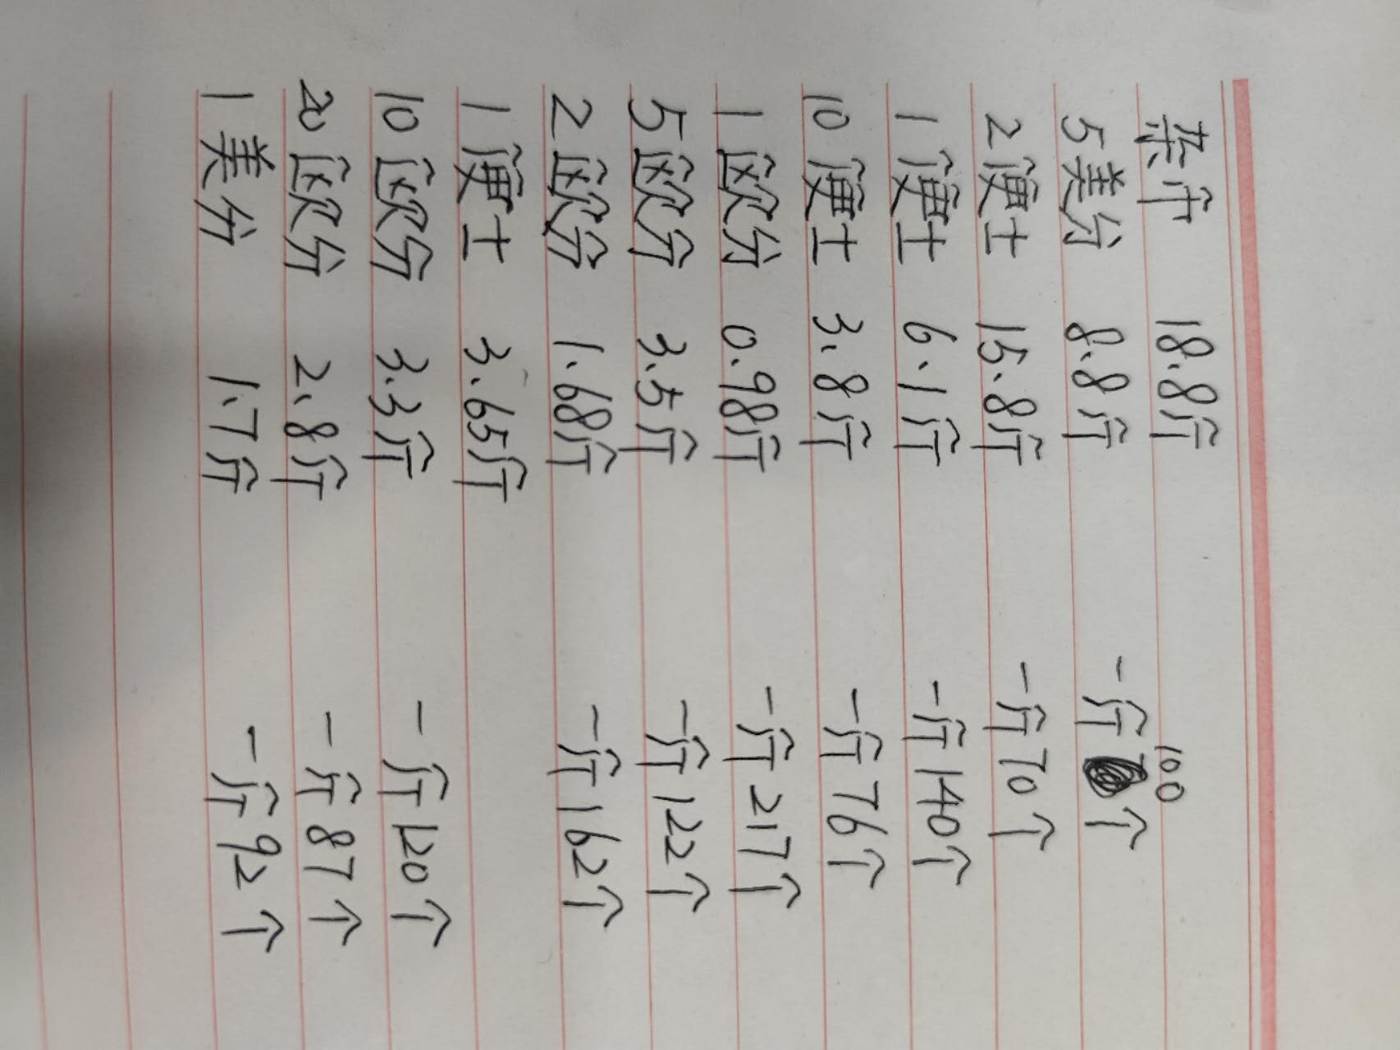 杂币 18.8斤
5美分 8.8斤 一斤100个
2便士 15.8斤 一斤70个
1便士 6.1斤 一斤140个
10便士 3.8斤 一斤76个
1欧分 0.98斤 一斤217个
5欧分 3.5斤 一斤122个
2欧分 1.68斤 一斤162个
1便士 3.65斤
10欧分 3.3斤 一斤120个
20欧分 2.8斤 一斤87个
1美分 1.7斤 一斤92个